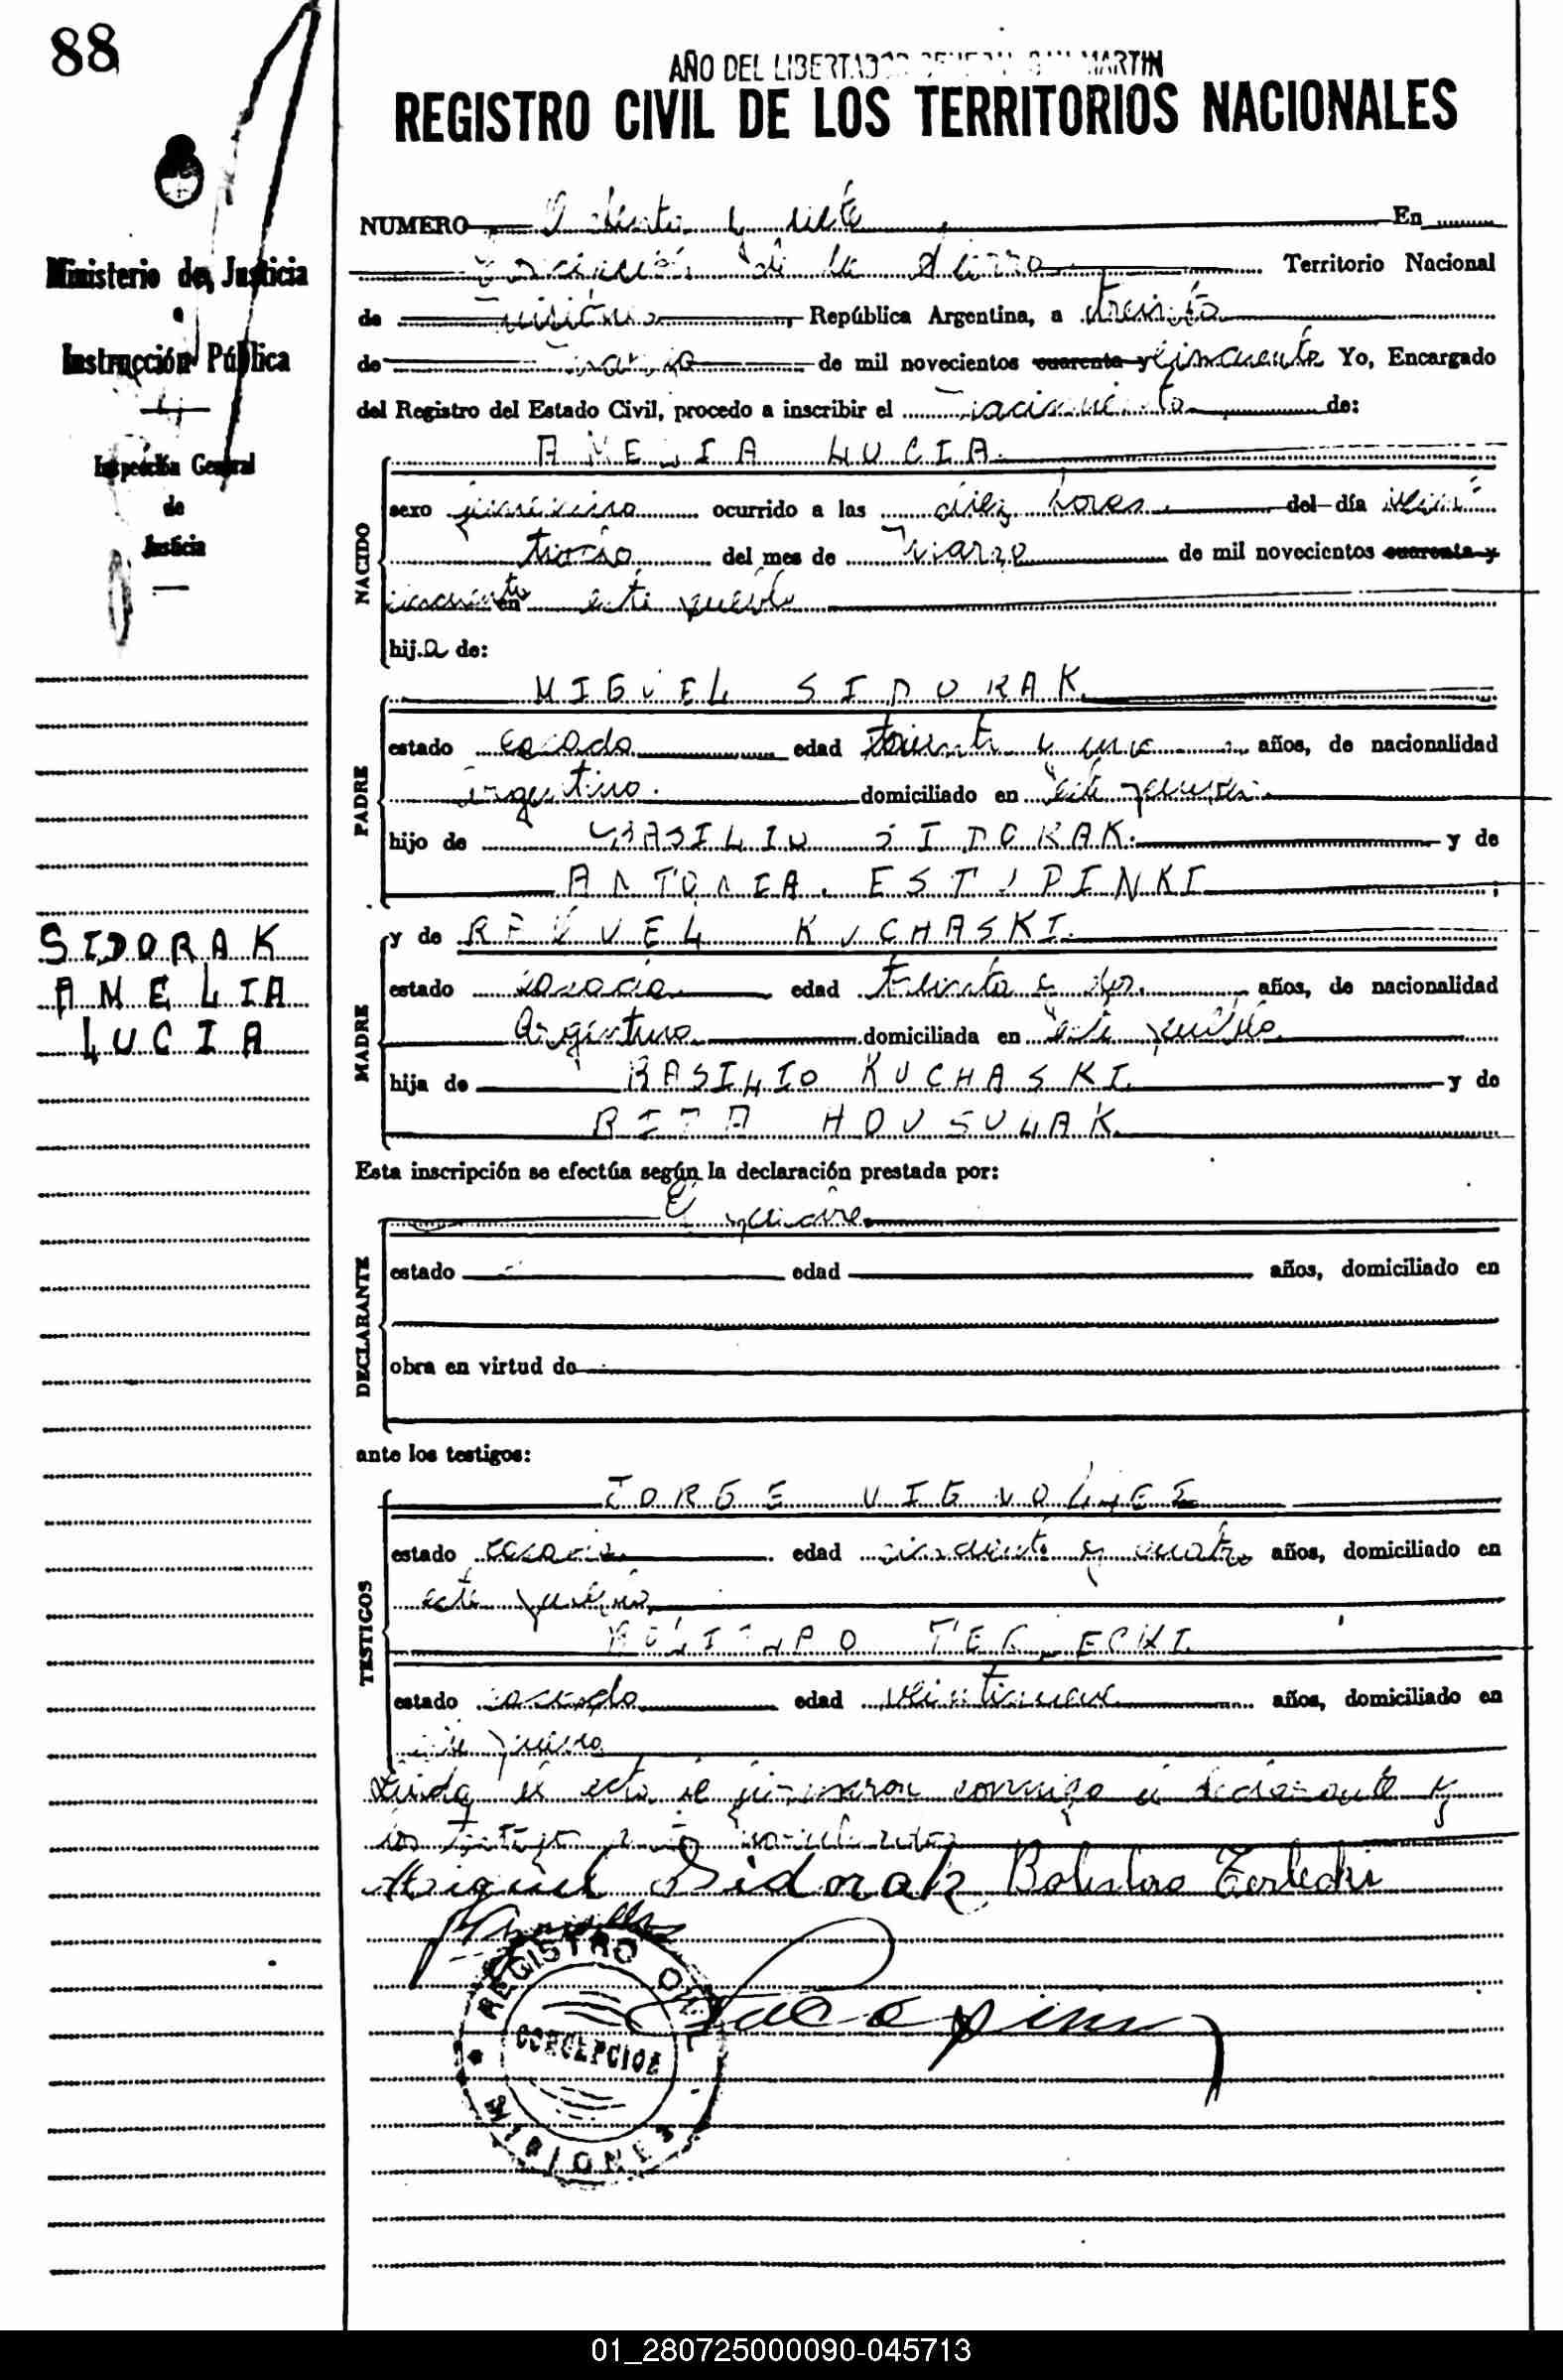 88
AÑO DEL LIBERTADOR GENERAL SAN MARTIN
REGISTRO CIVIL DE LOS TERRITORIOS NACIONALES
Ministerio de Justicia
Instrucción Pública
Inspección General
de
Justicia
NUMERO Ochenta y siete En
Concepción de la Sierra Territorio Nacional
de Misiones, República Argentina, a treinta
de marzo de mil novecientos cuarenta y cincuenta Yo, Encargado
del Registro del Estado Civil, procedo a inscribir el nacimiento de:
NACIDO
AMELIA LUCIA
sexo femenino ocurrido a las diez horas del día
del mes de Marzo de mil novecientos cuarenta y
cincuenta en este pueblo
hija de:
PADRE
MIGUEL SIDORAK
estado casado edad treinta y uno años, de nacionalidad
argentino domiciliado en este pueblo
hijo de BASILIO SIDORAK y de
ANTONIA ESTUPINKI
SIDORAK
AMELIA
LUCIA
MADRE
y de KUCHASKI
estado casada edad treinta y dos años, de nacionalidad
Argentina domiciliada en este pueblo
hija de BASILIO KUCHASKI y de
RITA HOUSULAK
Esta inscripción se efectúa según la declaración prestada por:
DECLARANTE
El padre
estado edad años, domiciliado en
obra en virtud de
ante los testigos:
TESTIGOS
JORGE VIGNOLLES
estado casado edad cincuenta y cuatro años, domiciliado en
este pueblo
estado casado edad años, domiciliado en
este pueblo
Leida el acta la firmaron conmigo el declarante y
los testigos
Miguel Sidorak Boleslao Terlecki
REGISTRO CIVIL
CONCEPCION
MISIONES
01_280725000090-045713